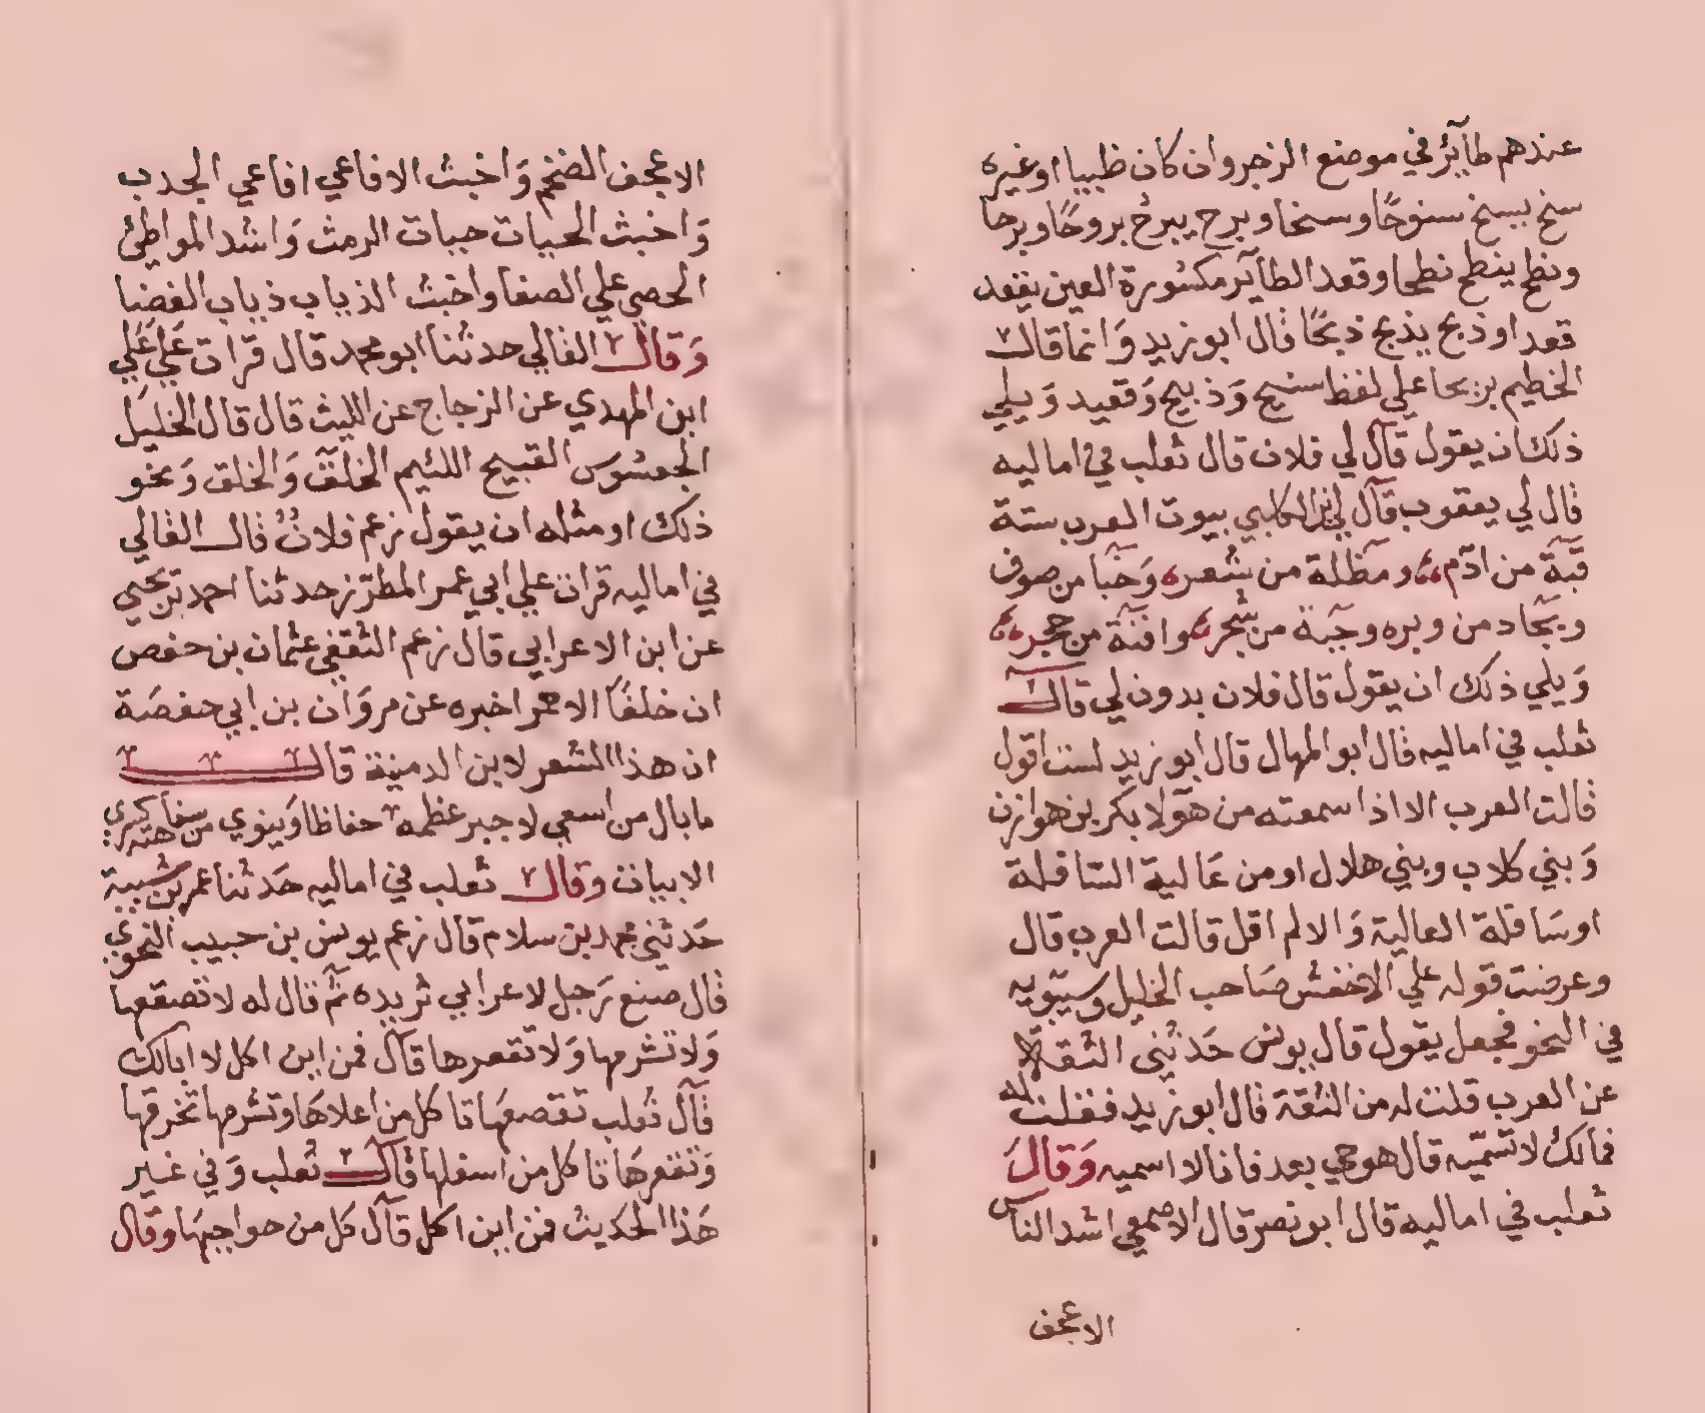 عندهم طآيرٌ في موضع الزجر وان كان ظبيا او غيره
سنح يسنح سنوحًا وسنحا وبرح يبرحُ بروحًا وبرحا
ونطح ينطح نطحا وقعد الطآير مكسورة العين يقعد
قعدا وذبح يذبح ذبحًا قال ابو زيد وَانما قال
الخطيم بريحا علي لفظ سنيح وَذبيح وَقعيد وَيلي
ذلك ان يقول قال لي فلان قال ثعلب في اماليه
قال لي يعقوب قال لي ابن الكلبي بيوت العرب ستة
قبة من ادم ومظلة من شعر وَخبا من صوف
وبجاد من وبره وجبة من شجر واقنة من حجر
وَيلي ذلك ان يقول قال فلان بدون لي قال
ثعلب في اماليه قال ابو المنهال قال ابو زيد لست اقول
قالت العرب الا اذا سمعته من هولا بكر بن هوازن
وَبني كلاب وبني هلال او من عَالية السافلة
او سَافلة العالية وَالا لم اقل قالت العرب قال
وعرضت قوله علي الاخفش صَاحب الخليل وسيبويه
في النحو فجعل يقول قال يونس حَدثني الثقة
عن العرب قلت له من الثقة قال ابو زيد فقلت له
فمالك لا تسمّيه قال هو حي بعد فانا لا اسميه وَقالَ
ثعلب في اماليه قال ابو نصر قال الاصمعي اشد الناس
الاعجف
الاعجف الضخم وَاخبث الافاعي افاعي الجدب
وَاخبث الحيات حيات الرمث وَاشد المواطئ
الحصي علي الصفا واخبث الذياب ذياب الغضا
وَقال القالي حدثنا ابو محمد قال قرات عَلي عَلي
ابن المهدي عن الزجاج عن الليث قال قال الخليل
الجعسوس القبيح اللئيم الخلق وَالخلق وَنحو
ذلك او مثله ان يقول زعم فلانٌ قال القالي
في اماليه قرات علي ابي عمر المطرز حدثنا احمد بن يحيي
عن ابن الاعرابي قال زعم الثقفي عثمان بن حفص
ان خلفًا الاحمر اخبره عن مروَان بن ابي حفصَة
ان هذا الشعر لابن الدمينة قال
ما بال من اسعي لاجبر عظمه حفاظا وَينوي من سفاهته كسري
الابيات وقال ثعلب في اماليه حَدثنا عمر بن شبة
حَدثني محمد بن سلام قال زعم يونس بن حبيب النحوي
قال صنع رَجل لاعرابي ثريده ثم قال له لا تصقعها
وَلا تشرمها وَلا تقعرها قال فمن اين اكل لا ابالك
قال ثعلب تقصعهَا تاكل من اعلاهَا وتشرمها تخرقها
وَتقعرهَا تاكل من اسفلها قال ثعلب وَفي غير
هَذا الحديث فمن اين اكل قال كل من جوانبهَا وقال